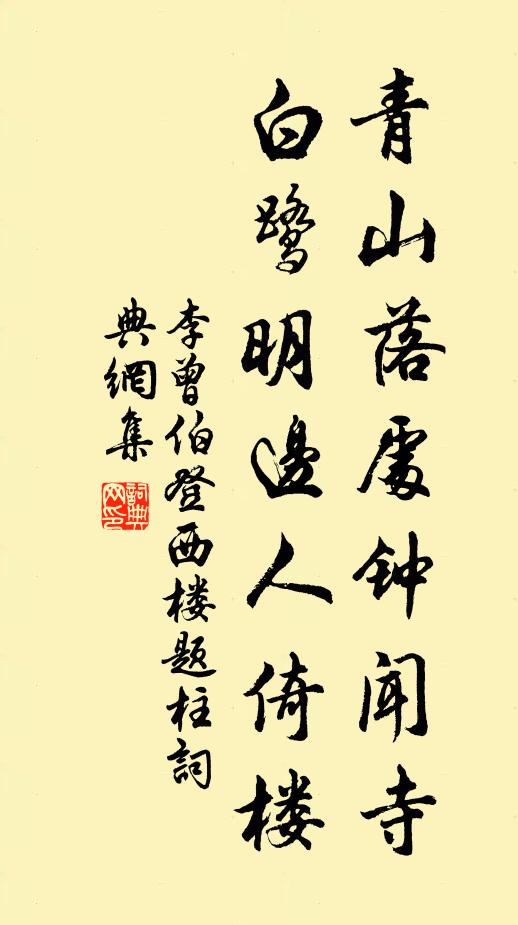 青山落處钟闻寺
白鹭明邊人倚楼
李曾伯登西楼题柱詞
典網集
詞典
网印